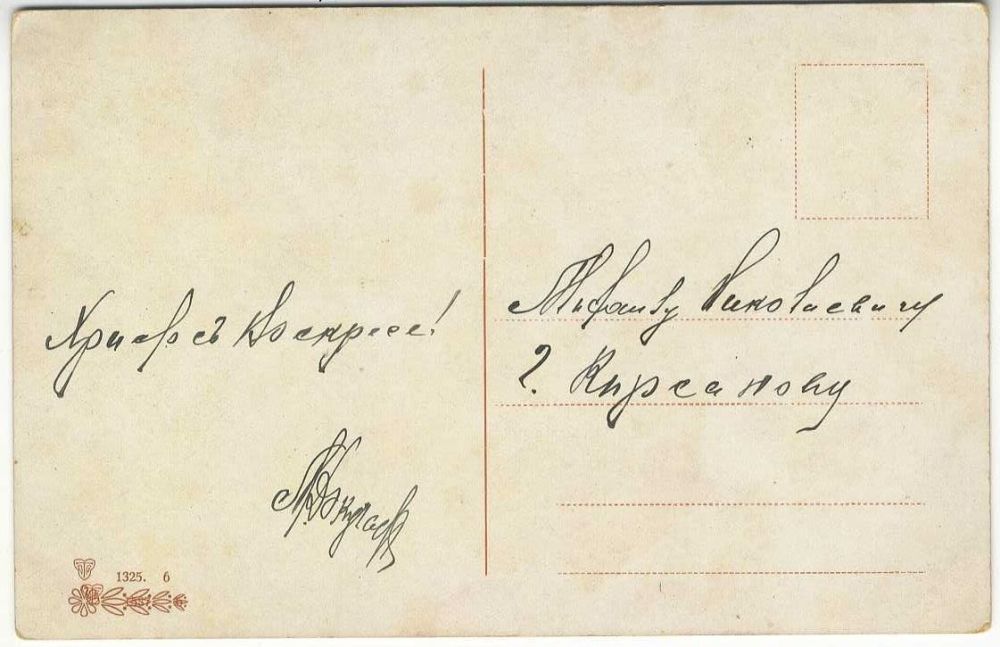 Христосъ Воскресе!
Николаевичу
Г. Кирсанову
1325. 6